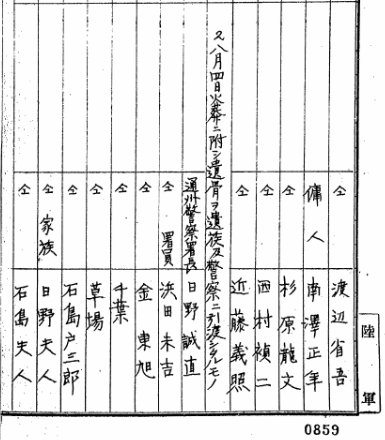 仝 渡辺省吾
傭人 南澤正年
仝 杉原龍文
仝 西村禎二
仝 近藤義照
2八月四日火葬ニ附シ遺骨ヲ遺族及警察ニ引渡シタルモノ
通州警察署長 日野誠直
仝 署員 浜田末吉
仝 金東旭
仝 千葉
仝 草場
仝 石島戸三郎
仝 家族 日野夫人
仝 石島夫人
陸軍
0859